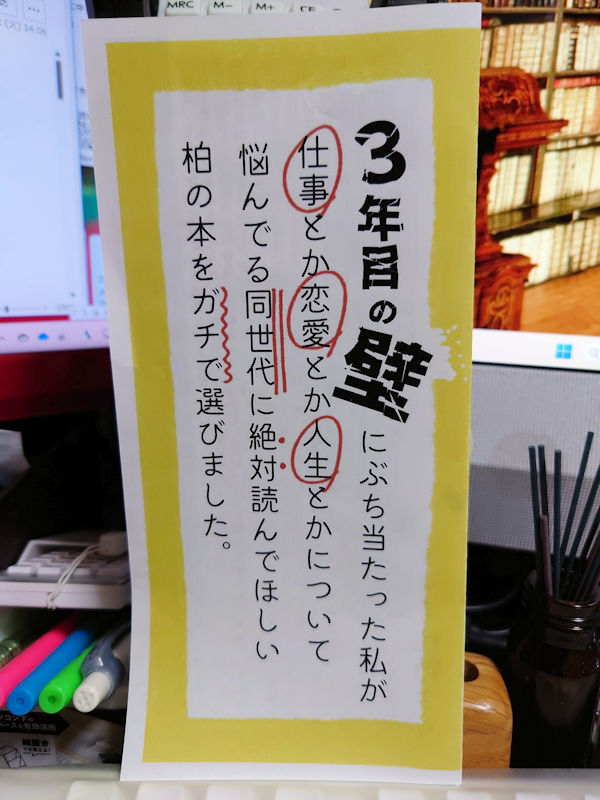 3年目の壁にぶち当たった私が
仕事とか恋愛とか人生とかについて
悩んでる同世代に絶対読んでほしい
柏の本をガチで選びました。
MRC
M−
M+
CE
(火) 14:06